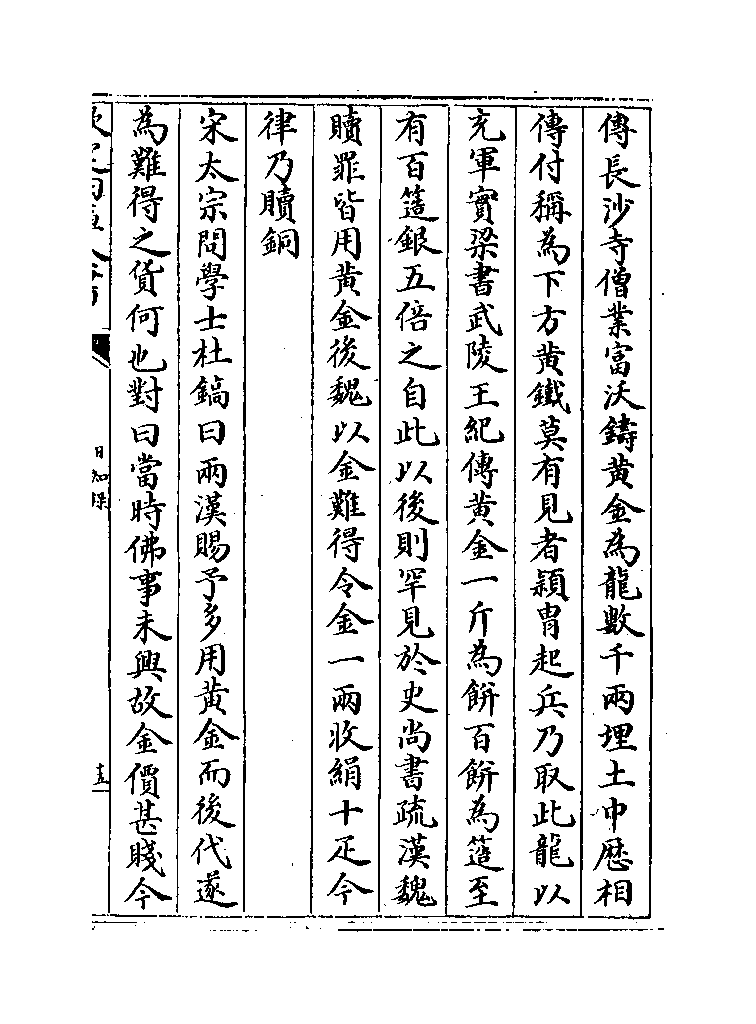 傳長沙寺僧業富沃鑄黄金為龍數千兩埋土中厯相
傳付稱為下方黄鐵莫有見者頴胄起兵乃取此龍以
充軍實梁書武陵王紀傳黄金一斤為餅百餅為簉至
有百簉銀五倍之自此以後則罕見於史尚書疏漢魏
贖罪皆用黄金後魏以金難得令金一兩收絹十疋今
律乃贖銅
宋太宗問學士杜鎬曰兩漢賜予多用黄金而後代遂
為難得之貨何也對曰當時佛事未興故金價甚賤今
日知録